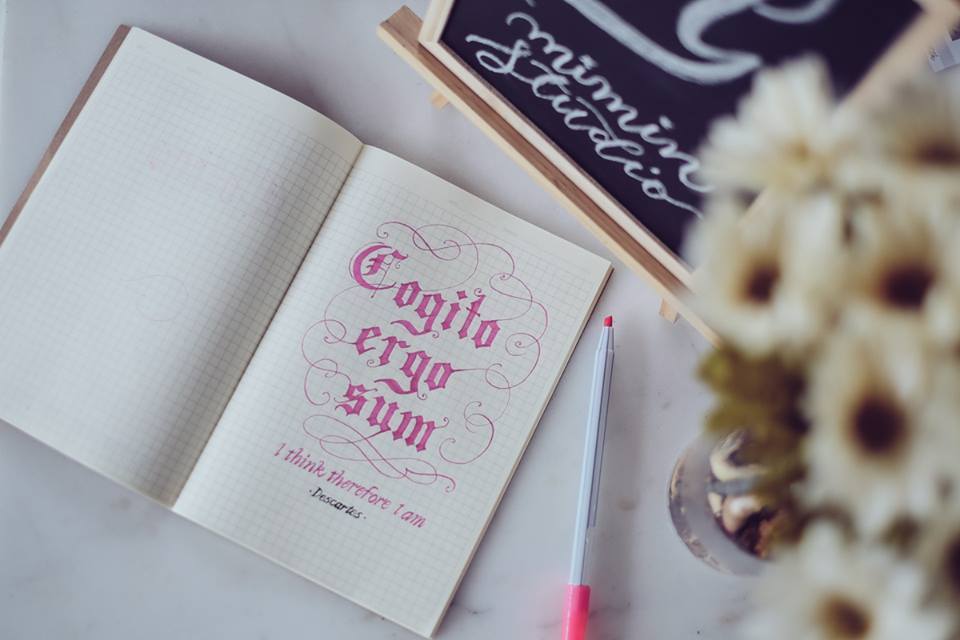 Cogito
ergo
sum
I think therefore I am
-Descartes-
mimin
studio